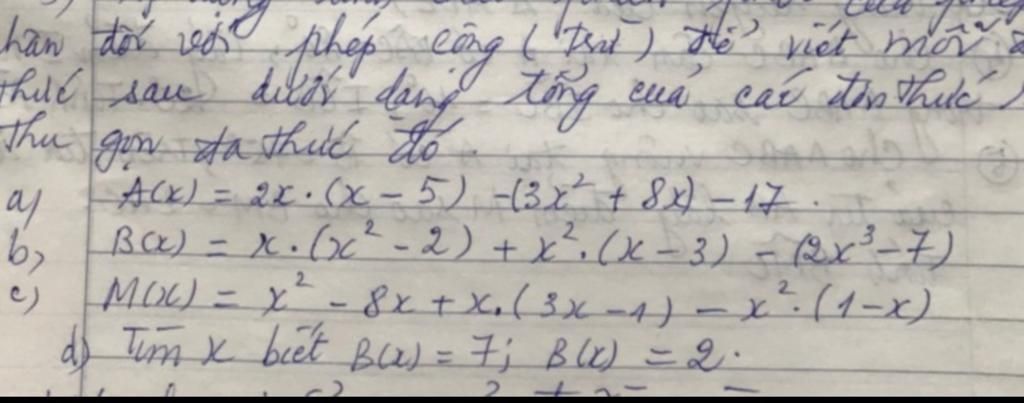 hân đối với phép cộng ( ) để viết mỗi
thức sau dưới dạng tổng của các đơn thức,
thu gọn đa thức đó.
a) A(x) = 2x.(x - 5) -(3x² + 8x) - 17.
b) B(x) = x.(x² - 2) + x².(x - 3) - (2x³ - 7)
c) M(x) = x² - 8x + x.(3x - 1) - x².(1 - x)
d) Tìm x biết B(x) = 7; B(x) = 2.